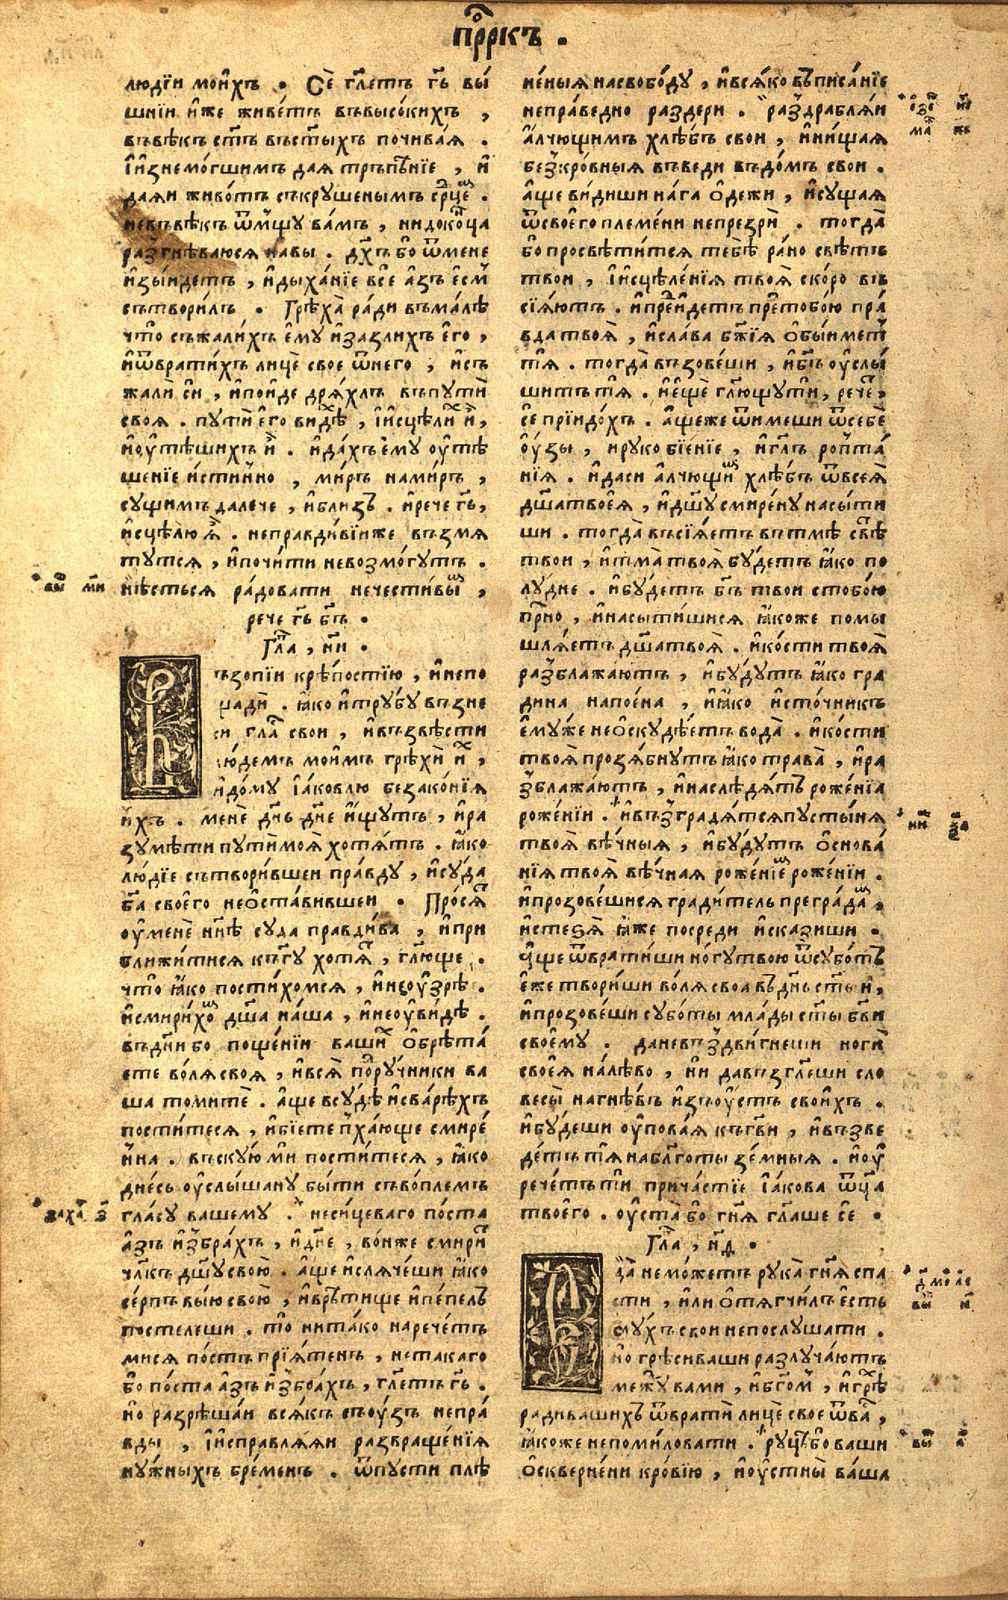 прⷪ҇ркъ .
людїи мои́хъ . Сѐ гл҃етъ гь҃ вы́
шнїи и҆́же живе́тъ въвысо́кихъ ,
въвѣ́къ ст҃ъ въст҃ыхъ почива́я .
И҆и҆знемо́гшимъ дая тръпѣ́нїе , и҆
дая́и живо́тъ съкруше́нымъ ср҃цеⷨ .
невъвѣ́къ ѿмщу́ ва́мъ , нидоконца
разгнѣ́ваюся навы . дх҃ъ бо ѿмене
и҆зы́идетъ , и҆дыха́нїе все а҆зъ е҆смь
сътвори́лъ . Грѣха̀ ра́ди въма́лѣ
что съжали́хъ е҆му и҆заѕлихъ е҆го ,
и҆ѿврати́хъ лицѐ свое ѿнего , и҆съ
жали си , и҆по́йде дря́хлъ въпути
своя . пути е҆го ви́дѣ , и҆исцѣли и҆ ,
и҆у҆тѣ́шихъ и҆ . и҆да́хъ е҆му у҆тѣ
шенїе и҆́стинно , ми́ръ нами́ръ ,
су́щимъ дале́че , и҆бли́зъ . и҆рече гь҃ ,
и҆сцѣлю́ ѧ҆ . непра́вдивїиже възмя
ту́тся , и҆почи́ти невозмо́гутъ .
вы́ш м҃и
нѣ́сться ра́довати нечести́выⷨ ,
рече гь҃ бг҃ъ .
Гл҃а , н҃и .
Възопїи крѣ́постїю , и҆непо
щади . ꙗ҆ко и҆трубу възне
си гла́ свои , и҆възвѣсти
лю́демъ мои́мъ грѣхи и҆́х ,
и҆до́му і҆а́ковлю безако́нїя
и҆́хъ . менѐ дн҃ь дне и҆́щутъ , и҆ра
зумѣ́ти пути́моя хотя́тъ . ꙗ҆ко
лю́дїе сътвори́вшеи пра́вду , и҆суда
бг҃а свое́го нео҆ста́вившеи . Про́сят
у҆мене нн҃ѣ суда пра́вдива , и҆при
бли́житися къбг҃у хотя , гл҃юще .
что ꙗ҆ко пости́хомся , и҆неу҆зрѣ .
и҆смири́хоⷨ дш҃а на́ша , и҆неу҆вѣ́дѣ .
въдн҃и бо поще́нїи ва́шиⷯ о҆брѣта́
ете во́ля своя , и҆вся по́ручники ва
ша томите . а҆ще всудѣ и҆сварѣхъ
пости́теся , и҆бїете пха́юще смире́
нна . въску́ю ми пости́теся , ꙗ҆ко
дне́сь у҆слы́шану бы́ти съво́племъ
заха́р з҃
гла́су ва́шему . несицева́го по́ста
а҆зъ и҆збра́хъ , и҆дн҃е , во́ньже смири
чл҃къ дш҃у свою . а҆ще и҆сляче́ши ꙗ҆ко
се́рпъ вы́ю свою , и҆вре́тище и҆пе́пелъ
постеле́ши . то нита́ко нарече́тъ
мися по́стъ прїя́тенъ , нетака́го
бо по́ста а҆зъ и҆збра́хъ , гл҃етъ гь҃ .
но разрѣша́и вся́къ съу́зъ непра́
вды , и҆исправля́яи развраще́нїя
ну́жныхъ бре́менъ . ѿпусти плѣ
не́ныя насвобо́ду , и҆вся́ко въписа́нїе
непра́ведно раздери . раздробля́и
а҆лчущимъ хлѣ́бъ свои , и҆ни́щая
безкро́вныя въведи въдо́мъ свои .
а҆ще ви́диши на́га о҆дежи , и҆су́щая
ѿсвое́го пле́мени непрезри . тогда
бо просвѣти́тся тебѣ́ ра́но свѣ́тъ
твои , и҆исцѣле́нїя твоя ско́ро въ
сїя́ютъ . и҆пре́идетъ пре́дтобою пра́
вда твоя , и҆сла́ва бж҃їя о҆бы́иметъ
тя . тогда възове́ши , и҆бг҃ъ у҆слы
шитъ тя . и҆е҆ще гл҃ющути , рече́т ,
се прїидо́хъ . а҆щеже ѿи́меши ѿсебе
у҆зы , и҆руко бїе́нїе , и҆гл҃ъ ропта́
нїя . и҆да́си а҆лчющиⷨ хлѣ́бъ ѿвсея
дш҃атвоея , и҆дш҃у смире́ну насы́ти
ши . тогда въсїя́етъ въ тмѣ свѣ́т
твои , и҆тма́ твоя бу́детъ ꙗ҆ко по
лу́дне . и҆бу́детъ бг҃ъ твои стобо́ю
при́сно , и҆насы́тишися ꙗ҆коже помы
шля́етъ дш҃атвоя . и҆ко́сти твоя
разблажа́ютъ , и҆бу́дутъ ꙗ҆ко гра
дина напое́на , и҆ꙗ҆ко и҆сто́чникъ
е҆му́же нео҆скудѣ́етъ вода . и҆ко́сти
твоя прозя́бнутъ ꙗ҆ко трава , и҆ра
зблажа́ютъ , и҆наслѣ́дятъ роже́нїа
роже́нїи . и҆възградя́тся пусты́ня
твоя вѣ́чныя , и҆бу́дутъ о҆снова́
нїя твоя вѣ́чная роже́нїеⷨ роже́нїи .
и҆прозове́шися гради́тель прегра́даⷨ ,
и҆стезя ꙗ҆же посреди и҆скази́ши .
а҆ще ѿврати́ши но́гу твою ѿсубо́тъ
е҆же твори́ши во́ля своа въ дн҃ь ст҃ы́и ,
и҆прозове́ши субо́ты мла́ды ст҃ы бг҃ви
своему . даневъздви́гнеши ноги
своея нале́во , ни давъзгл҃еши сло
весы́ нагнѣ́въ и҆зъу҆́стъ свои́хъ .
и҆бу́деши у҆пова́я къгв҃и , и҆възве
де́тъ тя набл҃готы зе́мныя . и҆оу҆
рече́тъ ти прича́стїе і҆а́кова ѿц҃а
твоего . у҆ста бо гн҃я гл҃аше се .
Гл҃а , н҃ѳ .
Еда немо́жетъ рука гн҃я спа
сти , и҆ли о҆тягчи́лъ е҆сть
слу́хъ свои непослу́шати .
но грѣси ва́ши разлуча́ютъ
межу ва́ми , и҆бг҃омъ , и҆грѣ́х
ради ва́шихъ ѿврати лицѐ свое ѿва́с ,
ꙗ҆коже непоми́ловати . ру́цѣ бо ва́ши
о҆скверне́ни кро́вїю , и҆у҆стны́ ва́ша